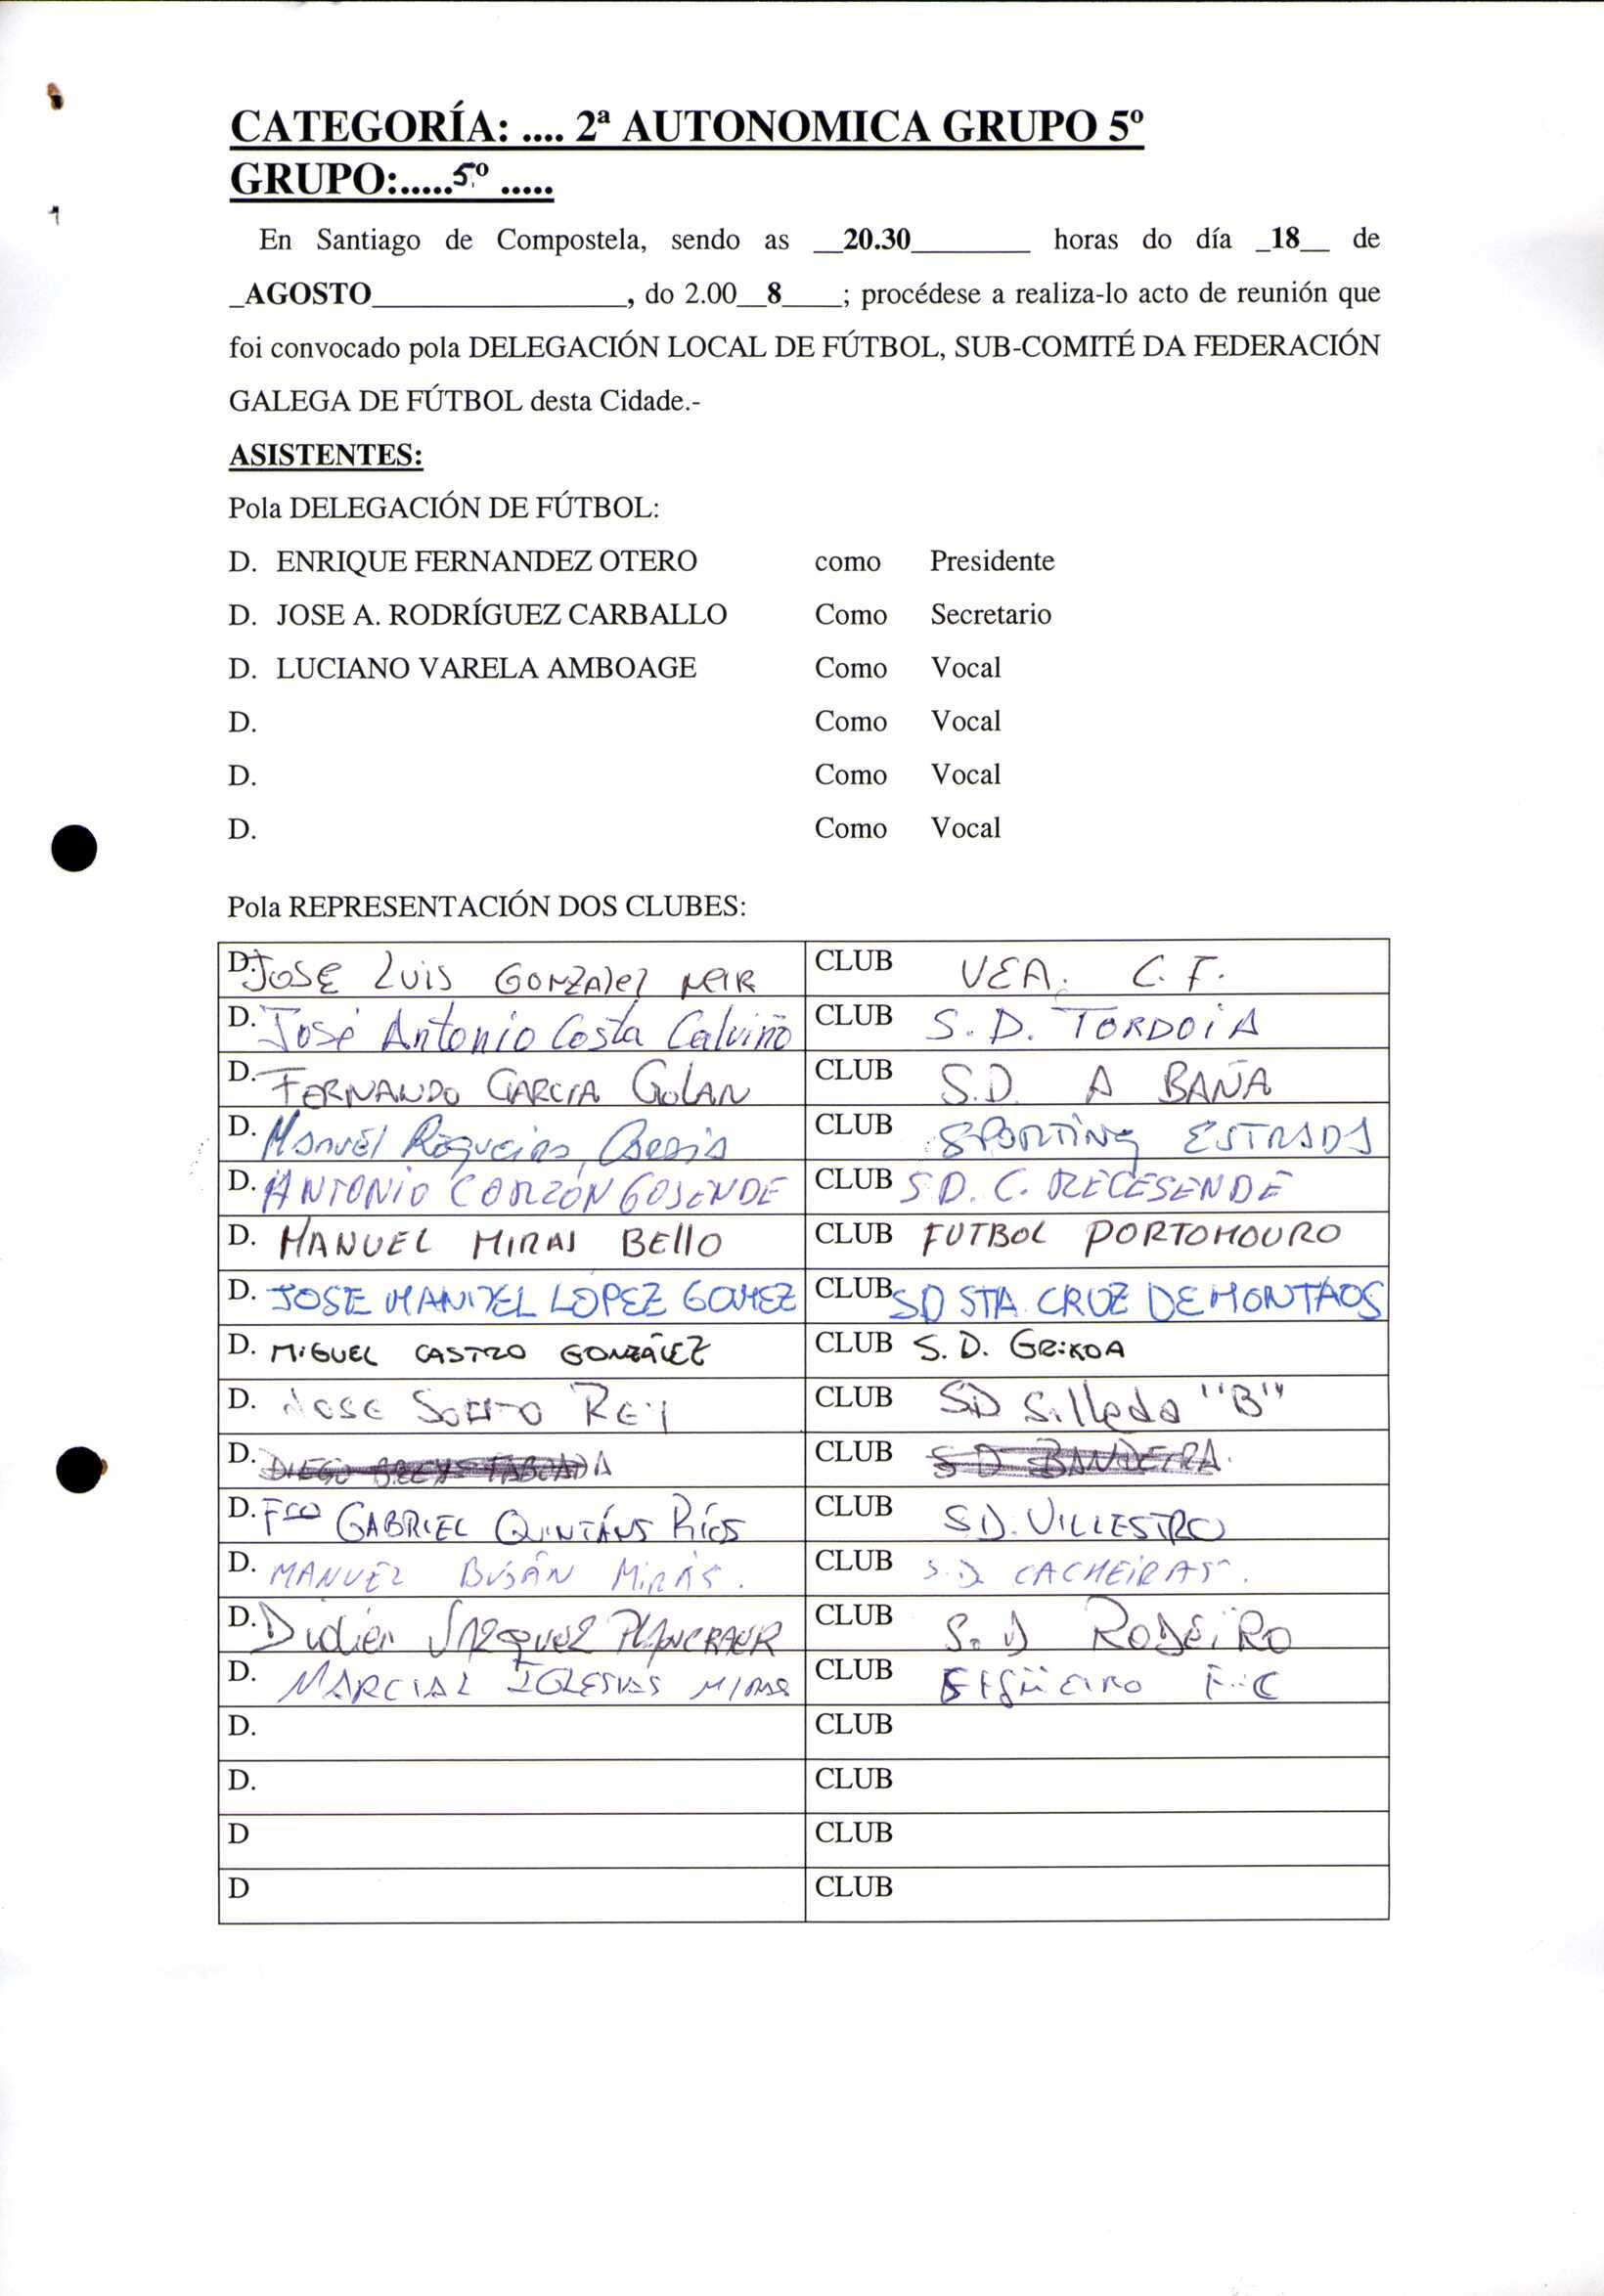 CATEGORÍA: .... 2ª AUTONOMICA GRUPO 5º
GRUPO:.....5º .....
En Santiago de Compostela, sendo as __20.30________ horas do día _18__ de
_AGOSTO_________________, do 2.00__8____; procédese a realiza-lo acto de reunión que
foi convocado pola DELEGACIÓN LOCAL DE FÚTBOL, SUB-COMITÉ DA FEDERACIÓN
GALEGA DE FÚTBOL desta Cidade.-
ASISTENTES:
Pola DELEGACIÓN DE FÚTBOL:
D. ENRIQUE FERNANDEZ OTERO como Presidente
D. JOSE A. RODRÍGUEZ CARBALLO Como Secretario
D. LUCIANO VARELA AMBOAGE Como Vocal
D. Como Vocal
D. Como Vocal
D. Como Vocal
Pola REPRESENTACIÓN DOS CLUBES:
D. JOSE LUIS GONZALEZ NEIR CLUB VEA. C.F.
D. José Antonio Costa Calviño CLUB S.D. TORDOIA
D. FERNANDO GARCIA GOLAN CLUB S.D. A BAÑA
D. Manuel CLUB SPORTING ESTRADA
D. ANTONIO CORZÓN GOSENDE CLUB S.D. C. RECESENDE
D. MANUEL MIRAS BELLO CLUB FUTBOL PORTOMOURO
D. JOSE MANUEL LOPEZ GOMEZ CLUB SD STA CRUZ DE MONTAOS
D. MIGUEL CASTRO GONZÁLEZ CLUB S.D. GRIXOA
D. JOSE SOUTO REY CLUB SD Silleda "B"
D. DIEGO TABOADA CLUB S D BANDEIRA.
D. Fco GABRIEL QUINTÁNS Ríos CLUB S.D. VILLESTRO
D. MANUEL BUJÁN MIRÁS. CLUB S.D. CACHEIRAS.
D. Didier VAZQUEZ CLUB S.D RODEIRO
D. MARCIAL IGLESIAS MIRAS CLUB SIGÜEIRO F.C
D. CLUB
D. CLUB
D CLUB
D CLUB